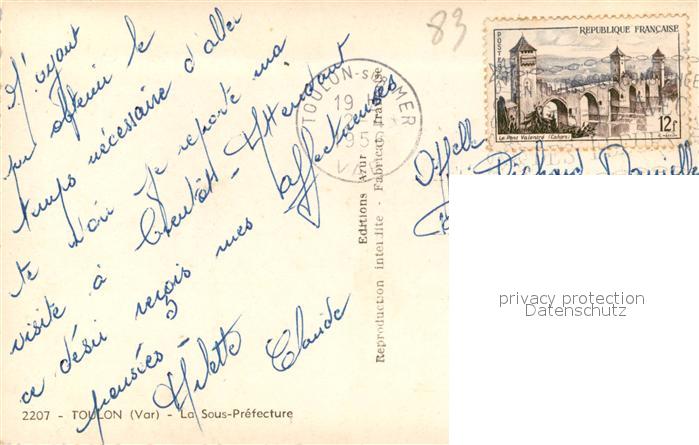 N'ayant
pu obtenir le
temps nécessaire d'aller
te voir je reporte ma
visite à bientôt - Attendant
ce désir reçois mes affectueuses
pensées -
Arlette Claude
2207 - TOULON (Var) - La Sous-Préfecture
Editions Azur
Reproduction interdite - Fabricat. Française
83
TOULON-SUR-MER
19 H
VAR
POSTES
REPUBLIQUE FRANÇAISE
Le Pont Valentré (Cahors)
12F
Richard Danielle
privacy protection
Datenschutz